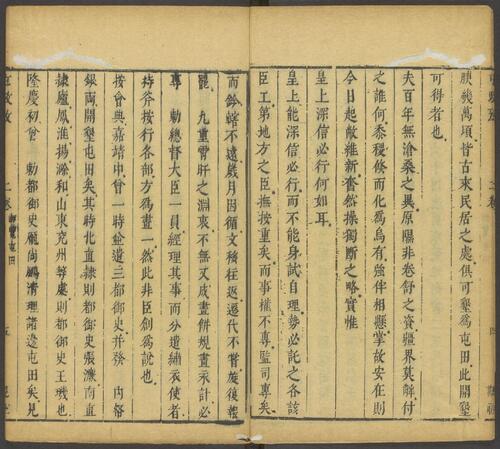 腴幾萬頃皆古來民居之處俱可墾為屯田此開墾
可得者也
夫百年無滄桑之異原隰非卷舒之資疆界莫解付
之誰何黍稷倏而化為烏有強伴相懸掌故安在則
今日起敝維新奮然操獨斷之略實惟
皇上深信必行何如耳
皇上能深信必行而不能身試自理勢必託之各該
臣工第地方之臣撫按重矣而事權不專監司專矣
而鈴轄不遠歲月因循文移往返遞代不常旋復報
罷 九重霄旰之淵衷不無又成畫餅規畫永計必
專 勅總督大臣一員經理其事而分遣繡衣使者
持斧按行各部方為畫一然此非臣創為說也
按會典嘉靖中曾一時並遣三都御史併發 內帑
銀兩開墾屯田矣其時北直隸則都御史張濂南直
隸廬鳳淮揚滁和山東兗州等處則都御史王璣也
隆慶初曾 勅都御史龐尚鵬清理諸邊屯田矣見